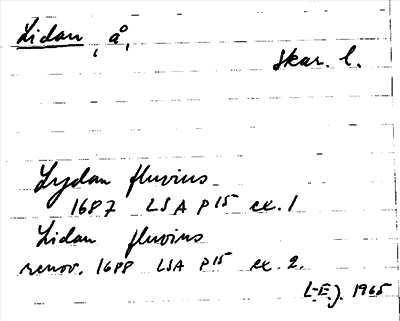 Lidan, å,
Skar. l.
Lydan fluvius
1687 LSA P15 ex. 1
Lidan fluvius
renov. 1688 LSA P15 ex. 2.
L-E.J. 1965